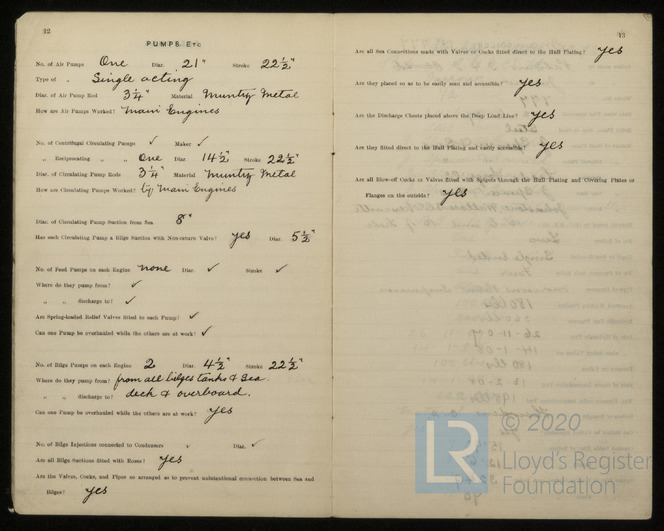 12
PUMPS, ETC
No. of Air Pumps One Diar. 21" Stroke 22½"
Type of „ Single acting
Diar. of Air Pump Rod 3¼" Material Muntz Metal
How are Air Pumps Worked? Main Engines
No. of Centrifugal Circulating Pumps ✓ Maker ✓
„ Reciprocating „ „ One Diar. 14½" Stroke 22½"
Diar. of Circulating Pump Rods 3¼" Material Muntz Metal
How are Circulating Pumps Worked? by Main Engines
Diar. of Circulating Pump Suction from Sea 8"
Has each Circulating Pump a Bilge Suction with Non-return Valve? Yes Diar. 5½"
No. of Feed Pumps on each Engine none Diar. ✓ Stroke ✓
Where do they pump from? ✓
„ „ discharge to? ✓
Are Spring-loaded Relief Valves fitted to each Pump? ✓
Can one Pump be overhauled while the others are at work? ✓
No. of Bilge Pumps on each Engine 2 Diar. 4½" Stroke 22½"
Where do they pump from? from all bilges tanks & Sea.
„ „ discharge to? deck & overboard.
Can one Pump be overhauled while the others are at work? Yes
No. of Bilge Injections connected to Condensers ✓ Diar. ✓
Are all Bilge Suctions fitted with Roses? Yes
Are the Valves, Cocks, and Pipes so arranged as to prevent unintentional connection between Sea and
Bilges? Yes
13
Are all Sea Connections made with Valves or Cocks fitted direct to the Hull Plating? Yes
Are they placed so as to be easily seen and accessible? Yes
Are the Discharge Chests placed above the Deep Load Line? Yes
Are they fitted direct to the Hull Plating and easily accessible? Yes
Are all Blow-off Cocks or Valves fitted with Spigots through the Hull Plating and Covering Plates or
Flanges on the outside? Yes
© 2020
LR Lloyd's Register
Foundation